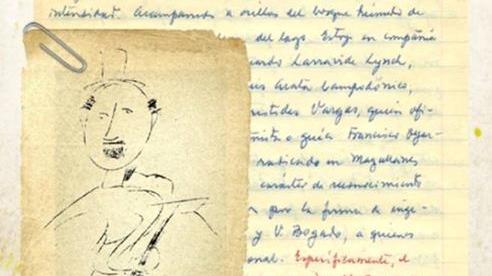 intensidad. Acampamos a orillas del bosque húmedo de
del lago. Estoy en compañía
Larravide Lynch,
Acata Campodónico,
Vargas, quien ofi-
o guía Francisco
radicado en Magallanes
carácter de reconocimiento
por la firma de inge-
y V. Bogado, a quienes
onal. Específicamente, el